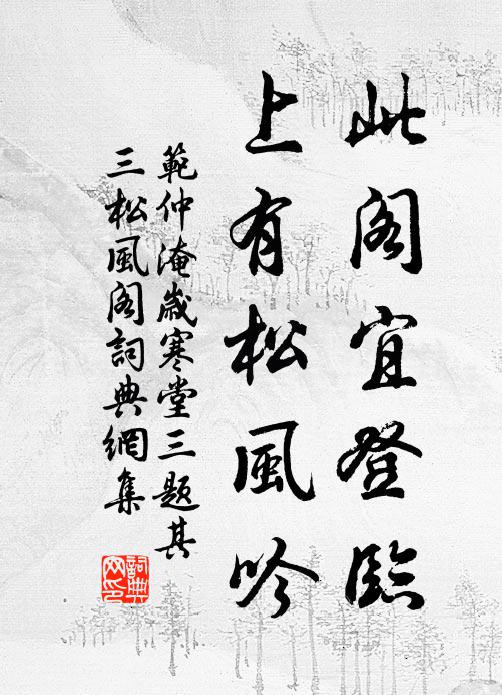 此閣宜登臨
上有松風吟
範仲淹歲寒堂三題其
三松風閣詞典網集
詞典
网印